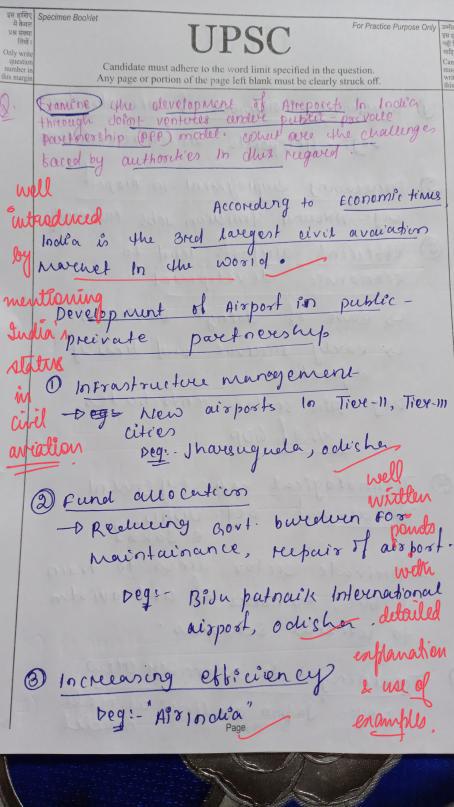 इस हाशिए
में केवल
प्रश्न संख्या
लिखें।
Only write
question
number in
this margin
Specimen Booklet
For Practice Purpose Only
UPSC
Candidate must adhere to the word limit specified in the question.
Any page or portion of the page left blank must be clearly struck off.
Q. Examine the development of Aireports in India
through Joint ventures under public-private
partnership (PPP) model. what are the challenges
faced by authorities in this regard.
According to Economic times,
India is the 3rd largest civil avaiation
Market in the world.
well
introduced
by
mentioning
India's
status
in
civil
aviation.
Development of Airport in public-
private partnership
① Infrastructure management
New airports in Tier-II, Tier-III
cities
eg:- Jharsuguda, odisha
② Fund allocation
→ Reducing govt. burdern for
Maintainance, repair of airport.
eg:- Biju patnaik International
airport, odisha.
③ Increasing efficiency
eg:- "Air India"
well
written
points
with
detailed
explanation
& use of
examples.
Page